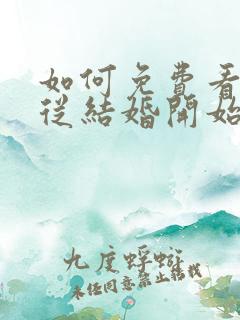 如何免費看
從結婚開始
九度蜉蝣
未经同意禁止转载